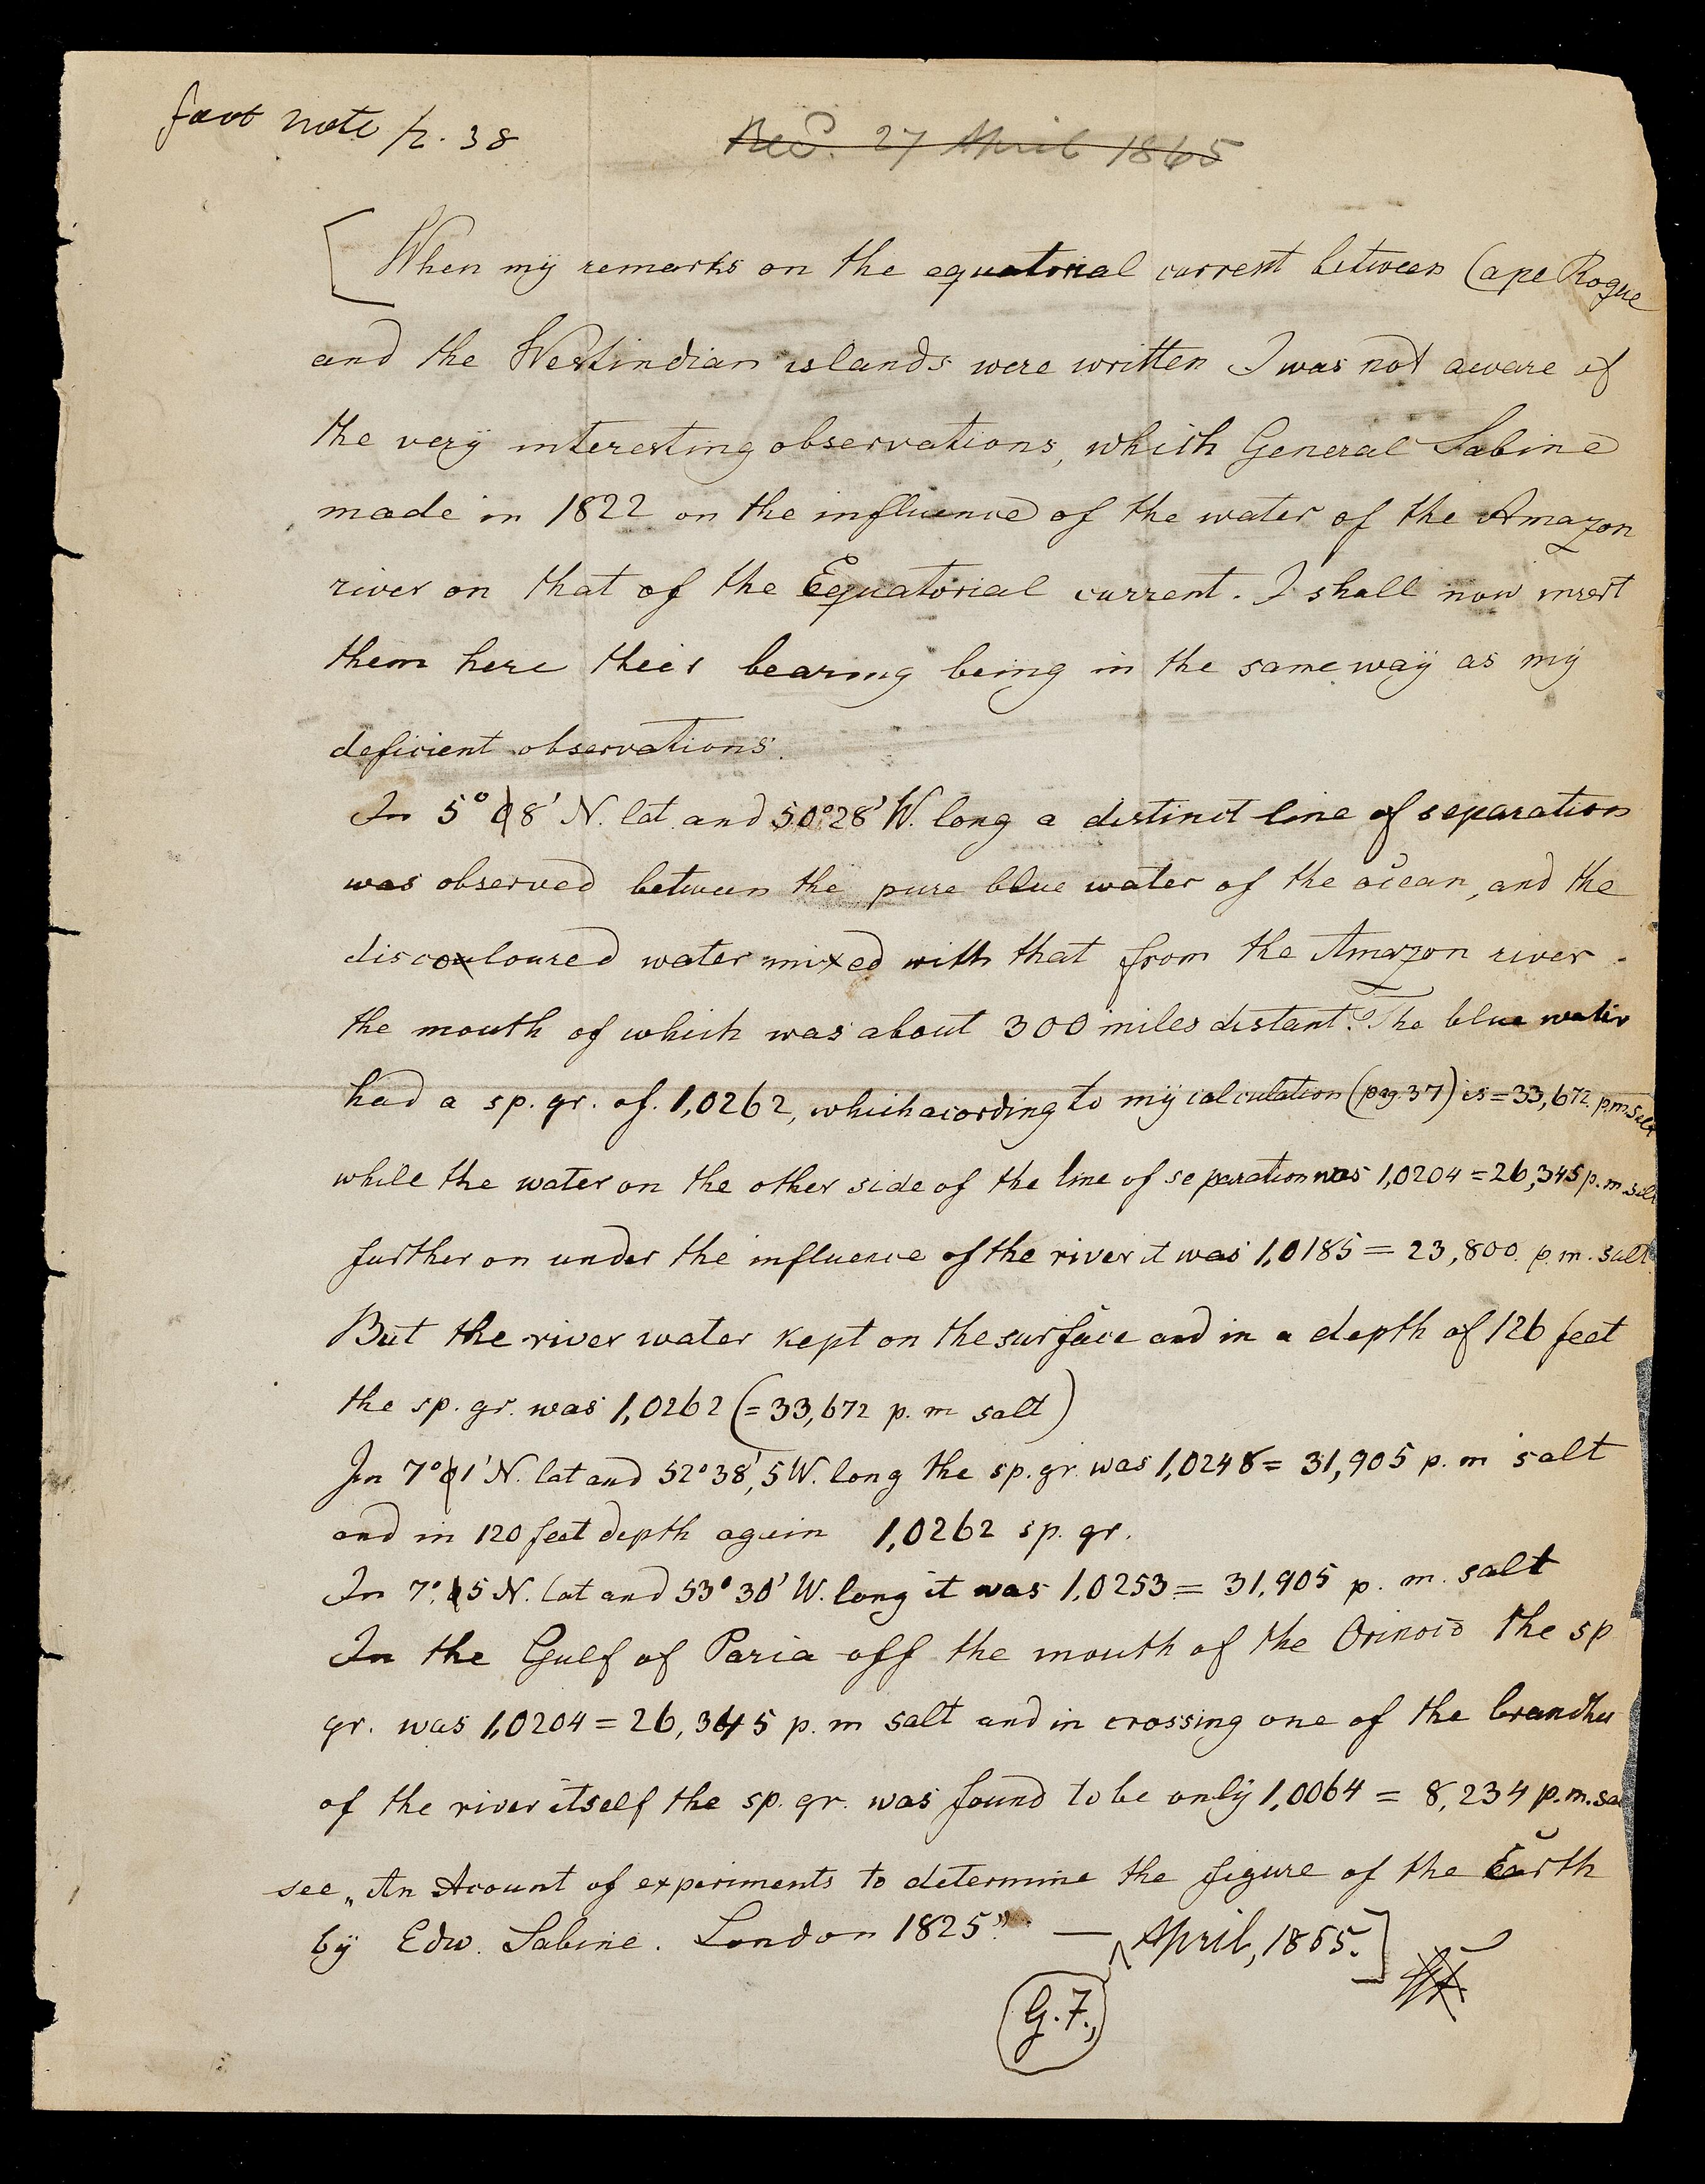 foot note p. 38
Recd. 27 April 1865
[When my remarks on the equatorial current between Cape Roque
and the Westindian islands were written I was not aware of
the very interesting observations, which General Sabine
made in 1822 on the influence of the water of the Amazon
river on that of the Equatorial current. I shall now insert
them here their bearing being in the same way as my
deficient observations.
In 5° 08' N. lat. and 50°28' W. long a distinct line of separation
was observed between the pure blue water of the ocean, and the
discouloured water mixed with that from the Amazon river
the mouth of which was about 300 miles distant. The blue water
had a sp. gr. of. 1,0262, which acording to my calculation (pag. 37) is = 33,672. p.m. salt
while the water on the other side of the line of separation was 1,0204 = 26,345 p. m. salt
further on under the influence of the river it was 1,0185 = 23,800. p. m. salt
But the river water kept on the surface and in a depth of 126 feet
the sp. gr. was 1,0262 (= 33,672 p. m salt)
In 7° 01' N. lat and 52°38',5 W. long the sp. gr. was 1,0248 = 31,905 p. m salt
and in 120 feet depth again 1,0262 sp. gr.
In 7°. 5 N. lat and 53° 30' W. long it was 1,0253 = 31,905 p. m. salt
In the Gulf of Paria off the mouth of the Orinoco the sp
gr. was 1,0204 = 26,345 p. m salt and in crossing one of the branches
of the river itself the sp. gr. was found to be only 1,0064 = 8,234 p. m. sa
see „An Acount of experiments to determine the figure of the Earth
by Edw. Sabine. London 1825". — April, 1865.]
G. F.,